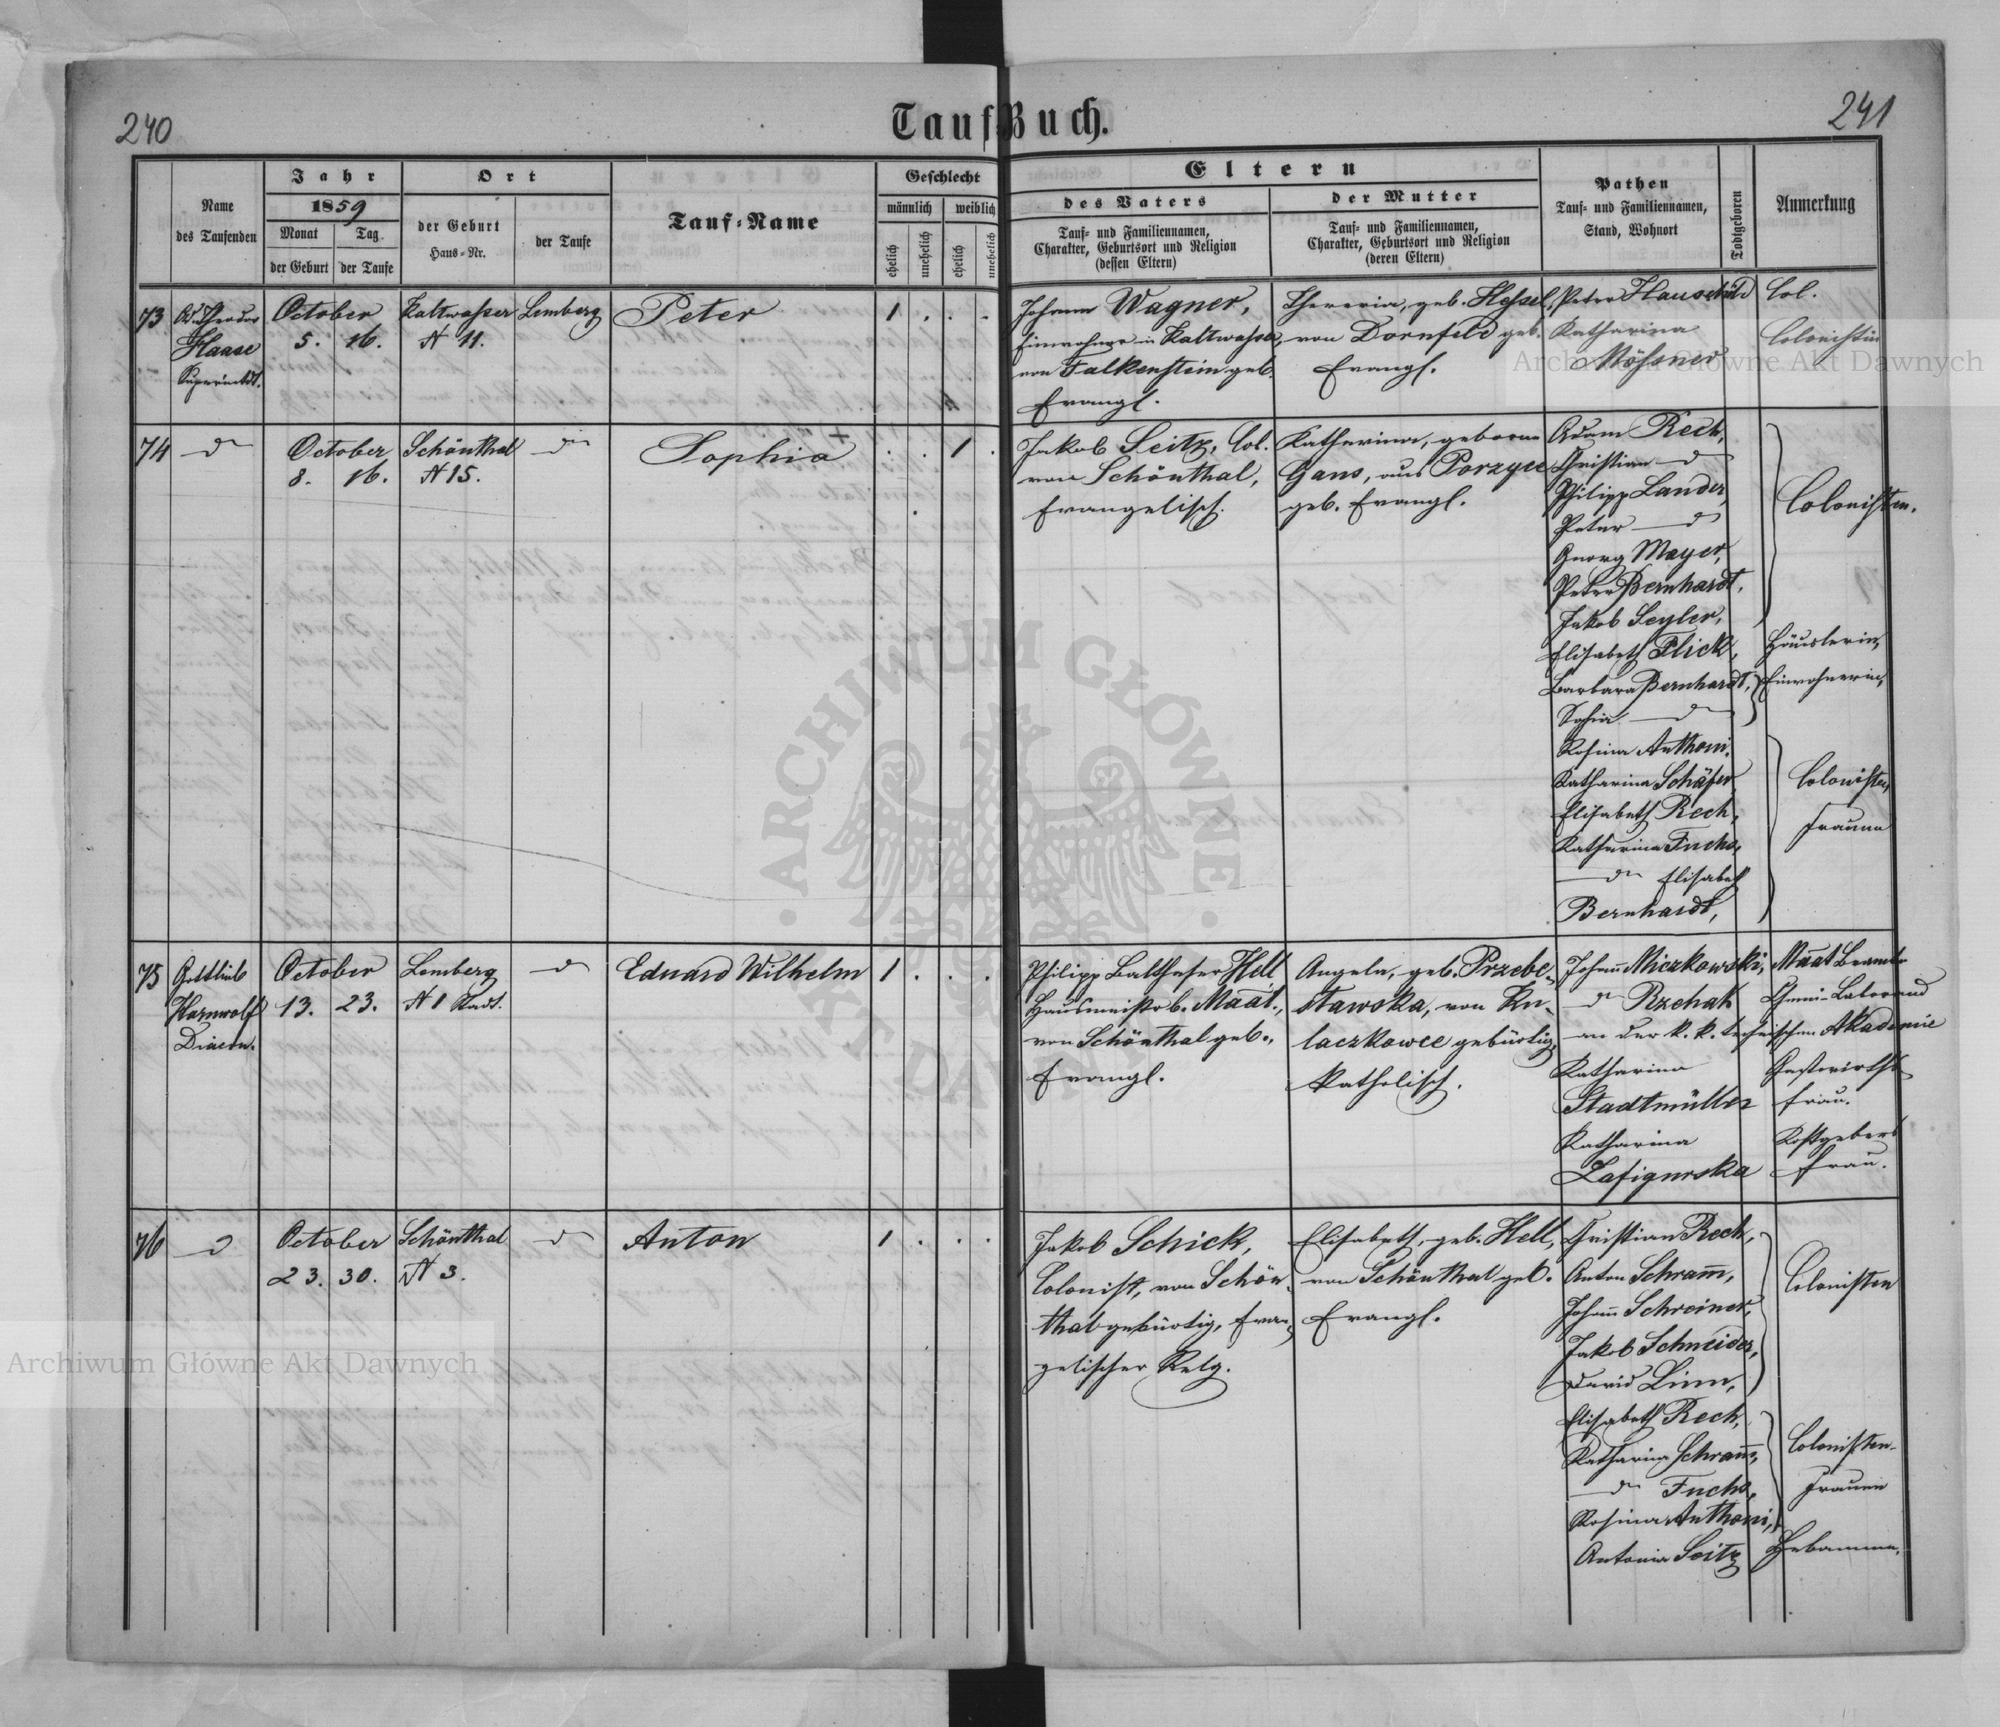 240
241
Tauf-Buch.
Name
des Taufenden
Jahr
1859
Monat
Tag
der Geburt
der Taufe
Ort
der Geburt
Haus-Nr.
der Taufe
Tauf-Name
Geschlecht
männlich
weiblich
ehelich
unehelich
ehelich
unehelich
Eltern
des Vaters
Tauf- und Familiennamen,
Charakter, Geburtsort und Religion
(dessen Eltern)
der Mutter
Tauf- und Familiennamen,
Charakter, Geburtsort und Religion
(deren Eltern)
Pathen
Tauf- und Familiennamen,
Stand, Wohnort
Todtgeboren
Anmerkung
73
Haase
Superintdt.
October
5. 16.
Kaltwasser
N 11.
Lemberg
Peter
1 . . .
Johann Wagner,
Einwohner in Kaltwasser,
von Falkenstein geb.
Evangl.
geb. Hessel,
von Dornfeld geb.
Evangl.
Peter
Katharina
Mössner
Col.
Colonistin
74
d
October
8. 16.
Schönthal
N 15.
d
Sophia
. . 1 .
Jakob Seitz, Col.
von Schönthal,
Evangelisch.
Katharina, geborne
Gans, aus
geb. Evangl.
Adam Rech,
Christian — d
Philipp Lander,
Peter — d
Georg Mayer,
Peter Bernhardt,
Jakob Seyler,
Elisabeth Flick,
Barbara Bernhardt,
Sofia — d
Rosina Anthoni,
Katharina Schäfer,
Elisabeth Rech,
Katharina Fuchs,
— d Elisabeth
Bernhardt,
Colonisten.
Häuslerin,
Einwohnerin,
Colonisten
frauen
75
Gottlieb
Harnwolf
Diacon.
October
13. 23.
Lemberg
N 1 Stadt.
d
Eduard Wilhelm
1 . . .
Philipp Balthaser Hell
Hausmeister b.
von Schönthal geb.,
Evangl.
Angela, geb. Przebe-
stawska, von Ku-
laczkowce gebürtig,
Katholisch.
Johann Miczkowski,
d Rzehak
an der k. k. technischen Akademie
Katharina
Stadtmüller
Katharina
Lafigurska
Gastwirths
frau.
Kostgebers
frau.
76
d
October
23. 30.
Schönthal
N 3.
d
Anton
1 . . .
Jakob Schick,
Colonist, von Schön-
thal gebürtig, Evan-
gelischer Relg.
Elisabeth, geb. Hell,
von Schönthal geb.
Evangl.
Christian Rech,
Anton Schram̅,
Johann Schreiner,
Jakob Schneider,
David Linn,
Elisabeth Rech,
Katharina Schram̅,
— d Fuchs,
Rosina Anthoni,
Antonia Seitz
Colonisten
Colonisten-
frauen
Hebamme.
Archiwum Główne Akt Dawnych
Archiwum Główne Akt Dawnych
ARCHIWUM GŁÓWNE AKT DAWNYCH